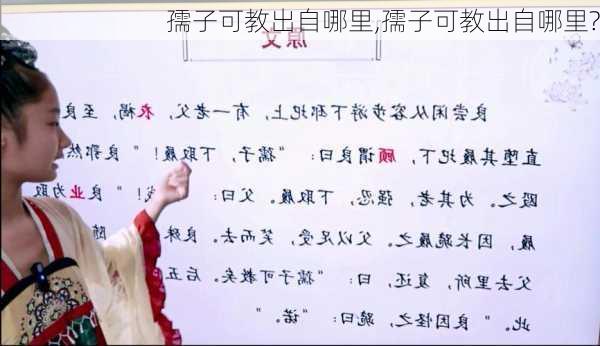 孺子可教出自哪里,孺子可教出自哪里?
原文
良尝闲从容步游下邳圯上，有一老父，衣褐，至良
直堕其履圯下，顾谓良曰：“孺子，下取履！”良鄂然
殴之。为其老，强忍，下取履。父曰： ！”良业为取
履，因长跪履之。父以足受，笑而去。良殊 随
父去里所，复还，曰：“孺子可教矣。后五
此。”良因怪之，跪曰：“诺。”